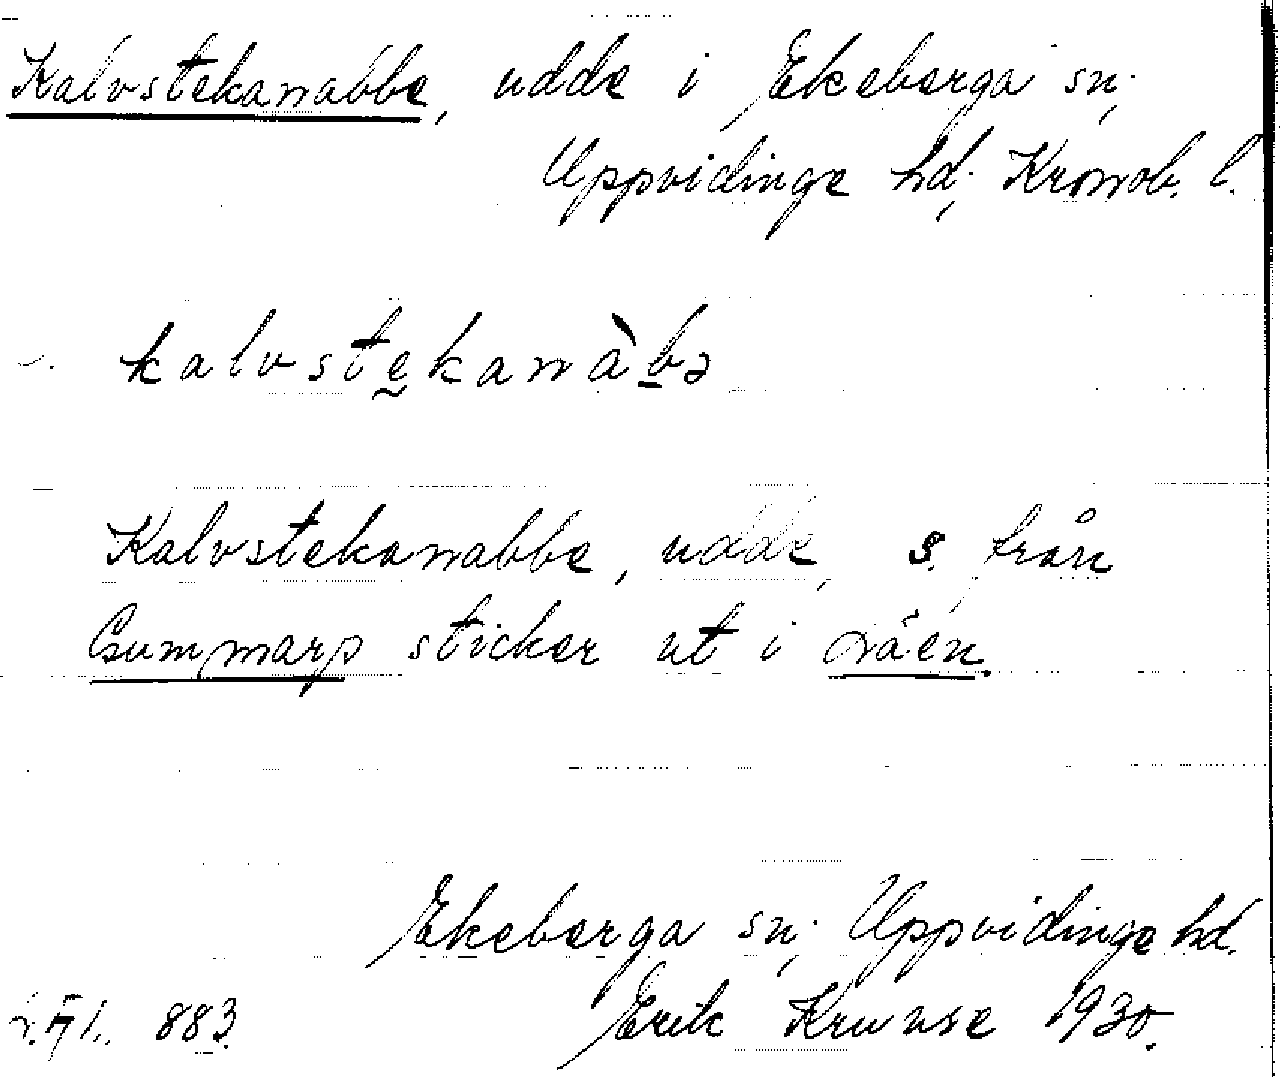 Kalvstekanabbe, udde i Ekeberga sn;
Uppvidinge hd; Kronob. l.
kalvstekanàbə
Kalvstekanabbe, udde, s. från
Gummarp sticker ut i Läen.
Ekeberga sn; Uppvidinge hd.
883. Erik Kruuse 1930.